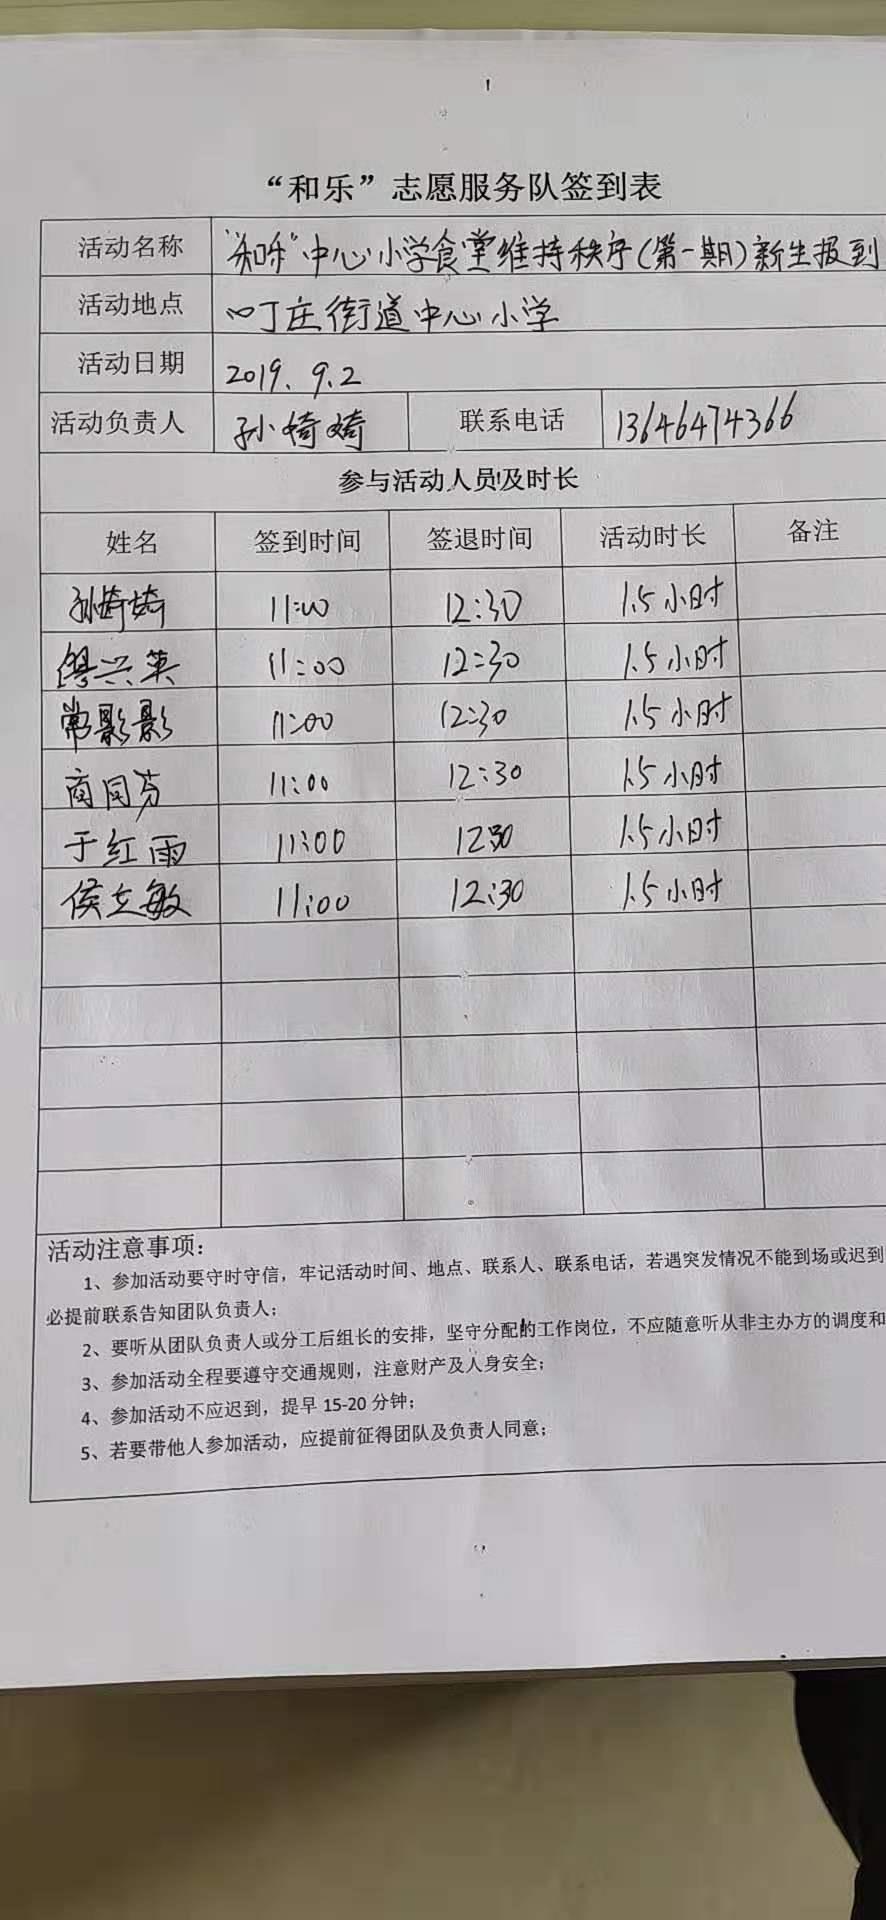 “和乐”志愿服务队签到表
活动名称 “和乐”中心小学食堂维持秩序(第一期)新生报到
活动地点 丁庄街道中心小学
活动日期 2019.9.2
活动负责人 孙婍婍 联系电话 13646474366
参与活动人员及时长
姓名 签到时间 签退时间 活动时长 备注
孙婍婍 11:00 12:30 1.5小时
缪兴英 11:00 12:30 1.5小时
常影影 11:00 12:30 1.5小时
商同芬 11:00 12:30 1.5小时
于红雨 11:00 12:30 1.5小时
侯立敏 11:00 12:30 1.5小时
活动注意事项:
1、参加活动要守时守信，牢记活动时间、地点、联系人、联系电话，若遇突发情况不能到场或迟到
必提前联系告知团队负责人；
2、要听从团队负责人或分工后组长的安排，坚守分配的工作岗位，不应随意听从非主办方的调度和
3、参加活动全程要遵守交通规则，注意财产及人身安全；
4、参加活动不应迟到，提早 15-20 分钟；
5、若要带他人参加活动，应提前征得团队及负责人同意；